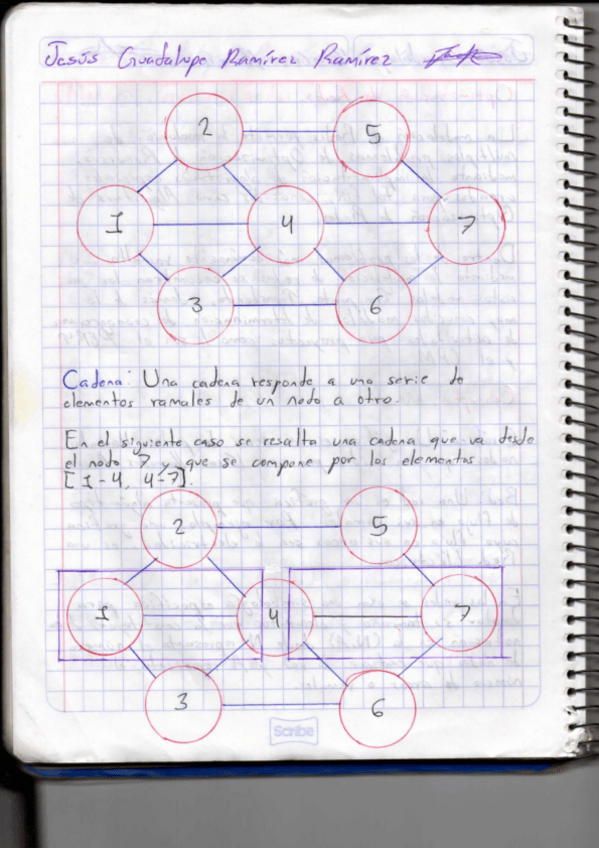 Jesús Guadalupe Ramírez Ramírez
2 5
1 4 7
3 6
Cadena: Una cadena responde a una serie de
elementos ramales de un nodo a otro.
En el siguiente caso se resalta una cadena que va desde
el nodo 7 y que se compone por los elementos
[1-4, 4-7].
2 5
1 4 7
3 6
Scribe